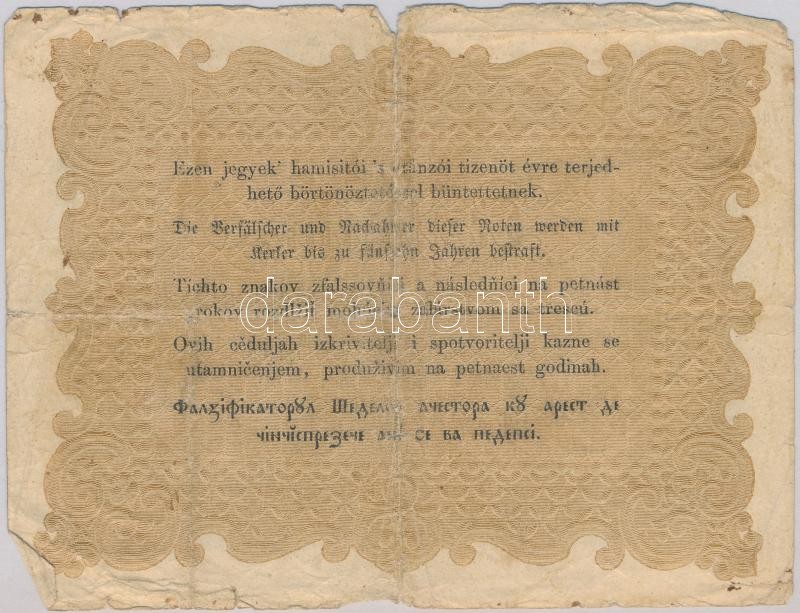 Ezen jegyek' hamisitói 's utánzói tizenöt évre terjed-
hető börtönöztetéssel büntettetnek.
Die Verfälscher und Nachahmer dieser Noten werden mit
Kerker bis zu fünfzehn Jahren bestraft.
Tíchto znakov zfalssovňíci a následňíci na petnást
rokov zabírstvom sa trescú.
Ovih cěduljah izkrivitelji i spotvoritelji kazne se
utamničenjem, produživim na petnaest godinah.
Фалꙅіфікаторꙋл Шеделор ачестора кꙋ арест де
чінчіспрезече ані се ва педепсі.
darabanth